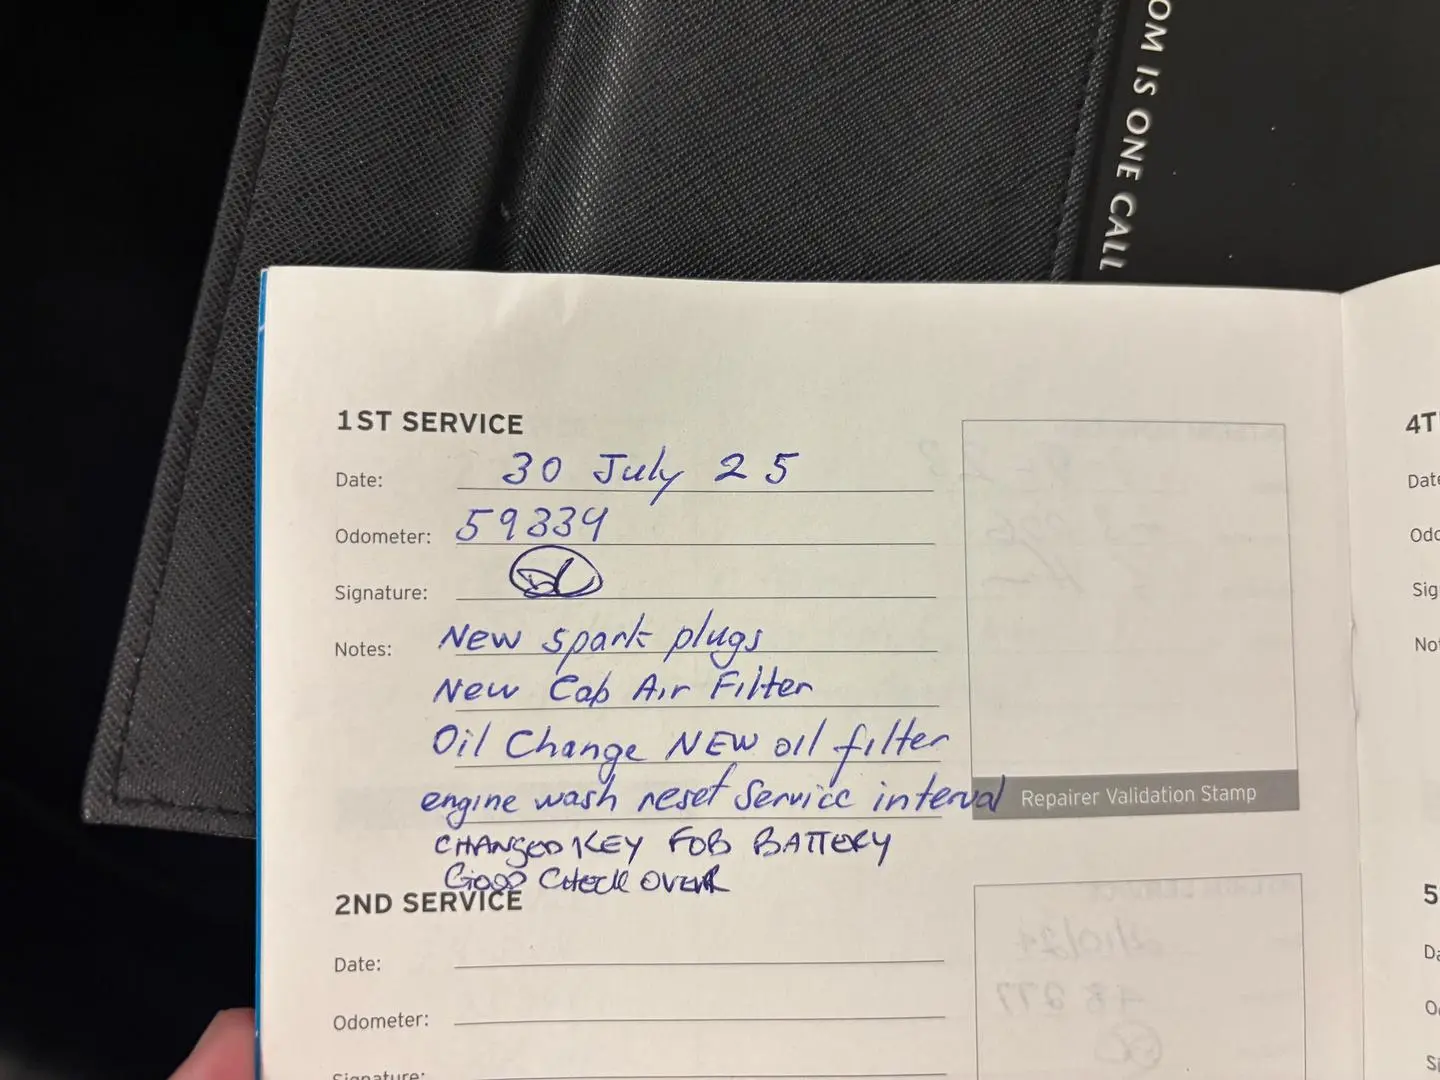 OM IS ONE CALL
1ST SERVICE
Date: 30 July 25
Odometer: 59339
Signature:
Notes: New spark plugs
New Cab Air Filter
Oil Change NEW oil filter
engine wash reset Service interval
CHANGED KEY FOB BATTERY
GOOD CHECK OVER
Repairer Validation Stamp
2ND SERVICE
Date:
Odometer:
Signature:
4T
Date
Odo
Sig
No
5
Da
O
Si